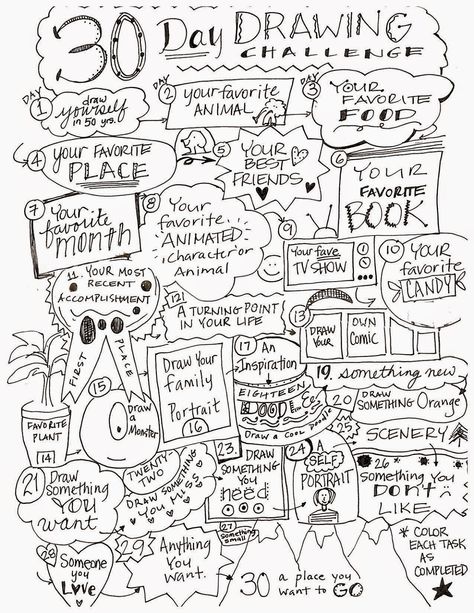 30 Day DRAWING
CHALLENGE
DAY
1
draw
yourself
in 50 yrs.
DAY
2
your favorite
ANIMAL
DAY
3
YOUR
FAVORITE
FOOD
4
YOUR FAVORITE
PLACE
5
YOUR
BEST
FRIENDS
6
YOUR
FAVORITE
BOOK
7
Your
favorite
month
8
Your
favorite
ANIMATED
character or
Animal
9
Your fave
TV SHOW
10
YOUR
favorite
CANDY
11. YOUR MOST
RECENT
ACCOMPLISHMENT
FIRST PLACE
12!
A TURNING POINT
IN YOUR LIFE
13
DRAW
YOUR
OWN
Comic
FAVORITE
PLANT
14
15
Draw
a Monster
Draw Your
Family
Portrait
16
17
An
Inspiration
EIGHTEEN
DOOD
Draw a Cool Doodle
19, something new
20 DRAW
SOMETHING Orange
21
Draw
Something
YOU
want
TWENTY-
TWO
DRAW SOMETHING
YOU MISS
23.
DRAW
SOMETHING
YOU
need
24
A
SELF
PORTRAIT
25
SCENERY
26
something You
DON'T
LIKE
27
something
small
28
Someone
you
LOVE
29
Anything
You
Want.
30 a place you
want to GO
* COLOR
EACH TASK
AS
COMPLETED